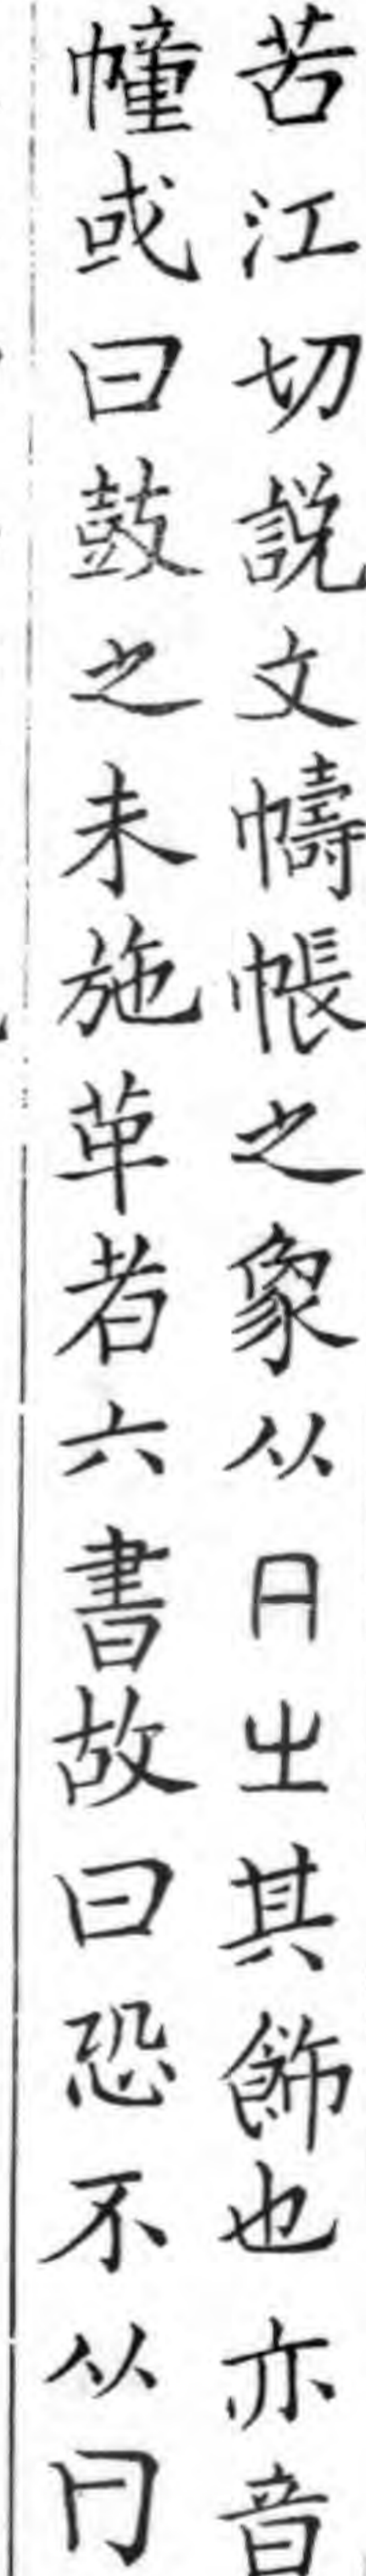 苦江切説文幬帳之象从冃㞢其飾也亦音
幢或曰鼓之未施革者六書故曰恐不从冃